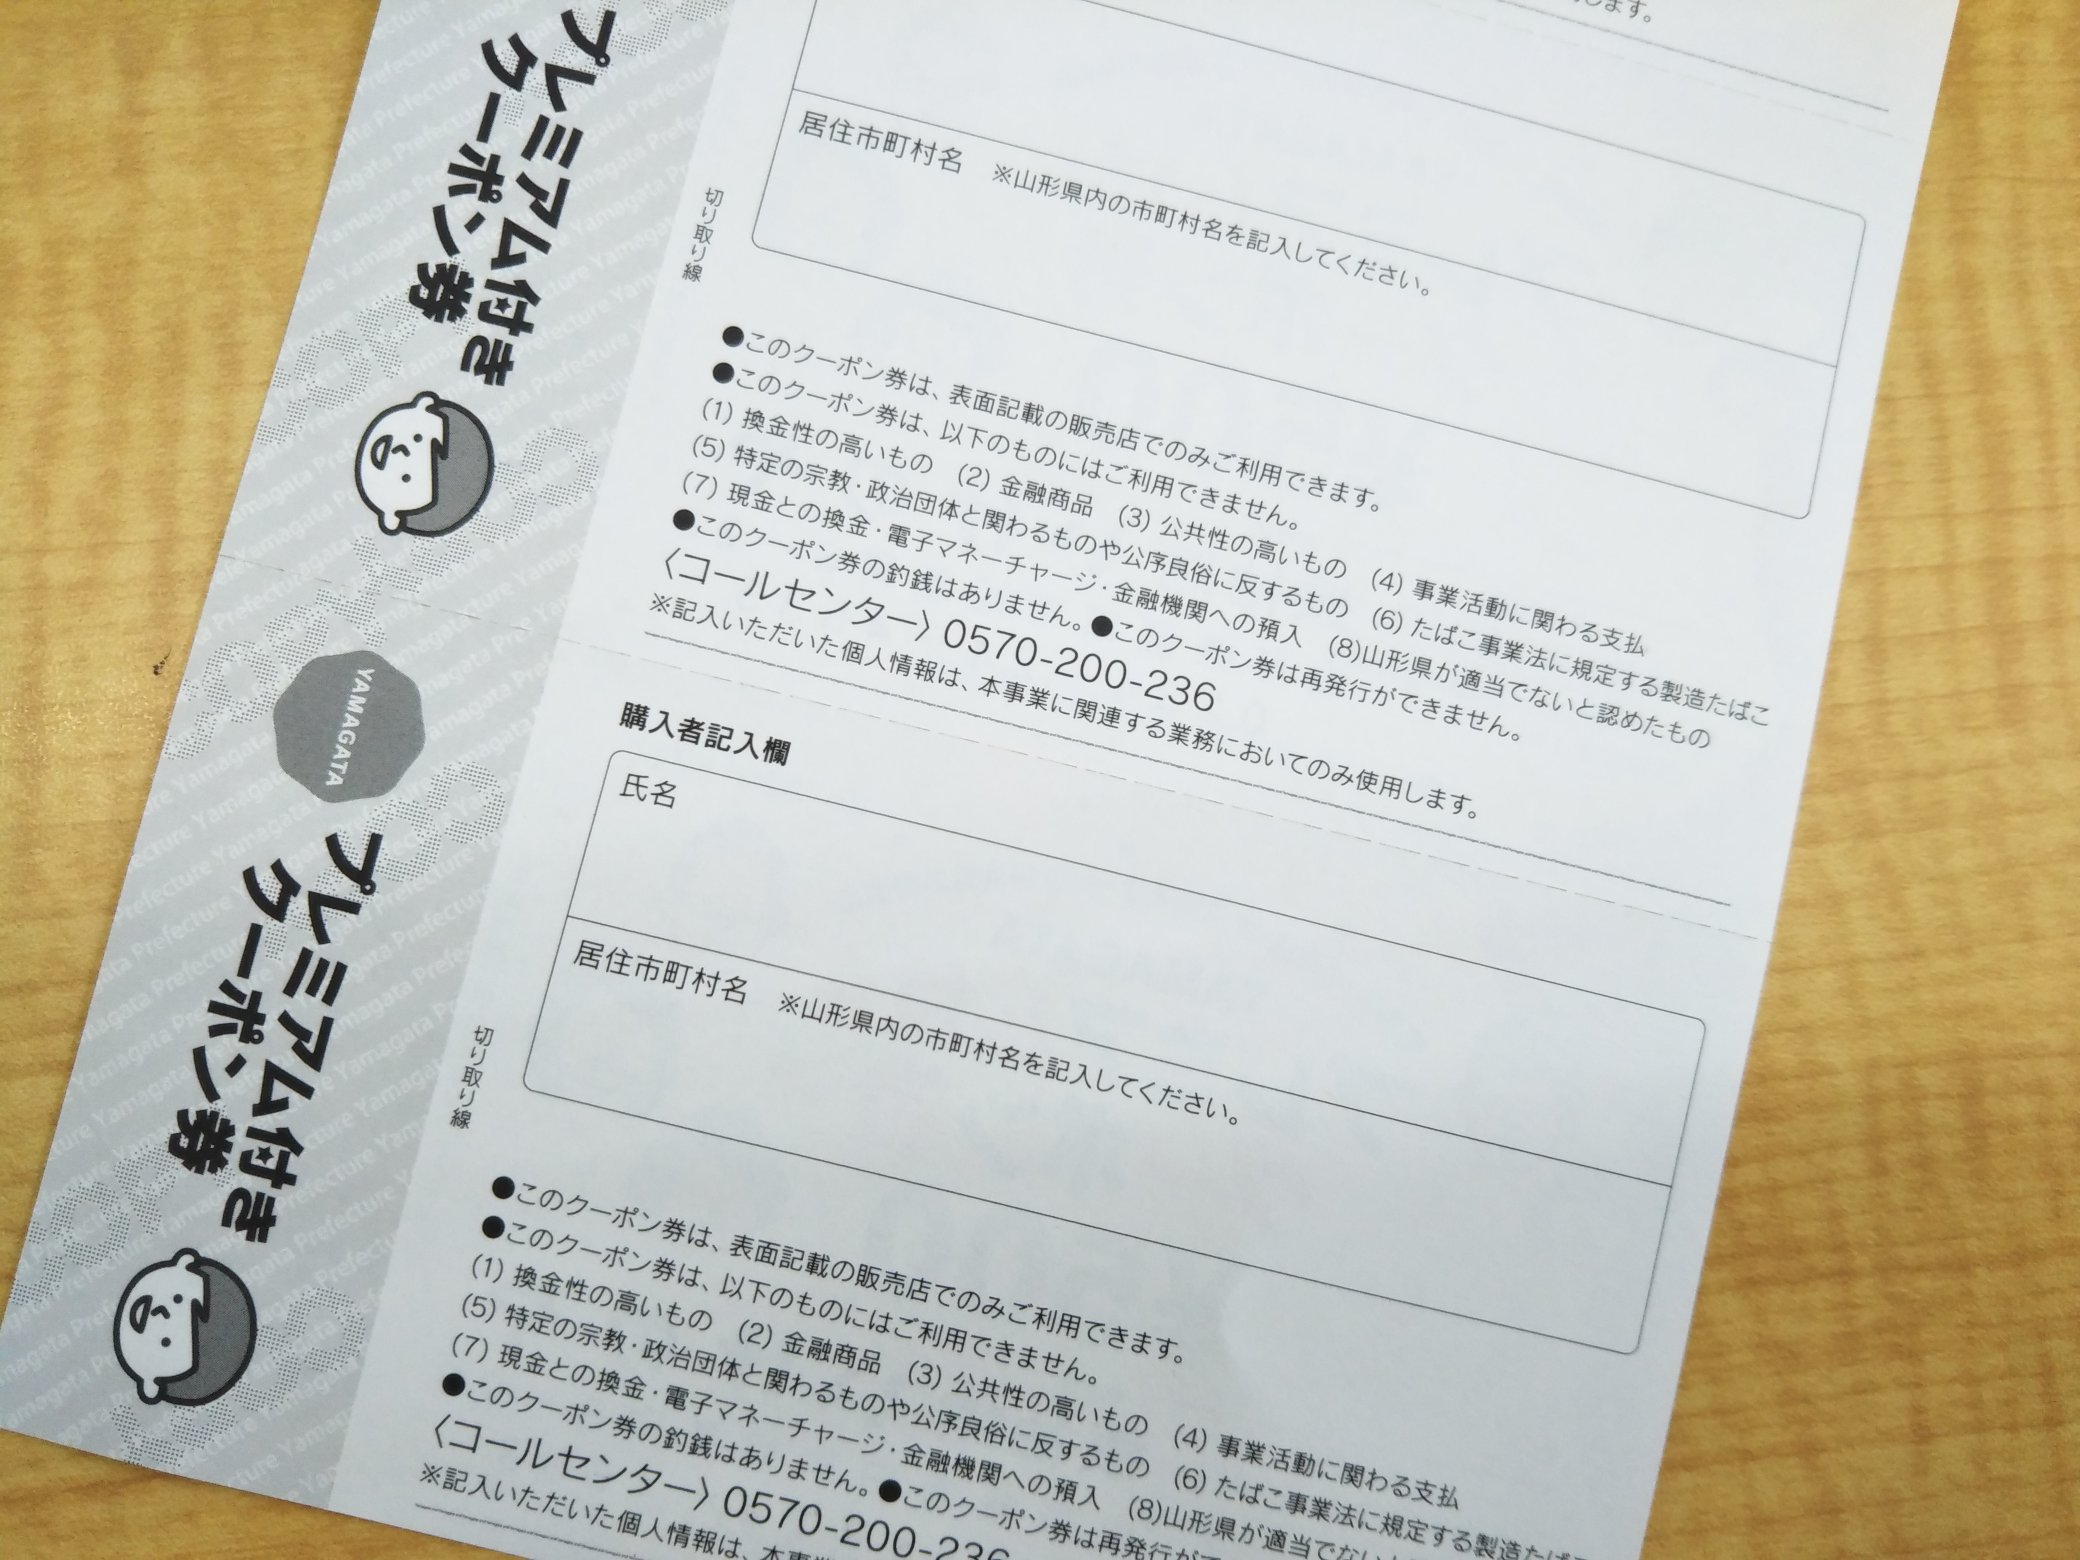 します。
居住市町村名 ※山形県内の市町村名を記入してください。
切り取り線
●このクーポン券は、表面記載の販売店でのみご利用できます。
●このクーポン券は、以下のものにはご利用できません。
(1) 換金性の高いもの (2) 金融商品 (3) 公共性の高いもの (4) 事業活動に関わる支払
(5) 特定の宗教・政治団体と関わるものや公序良俗に反するもの (6) たばこ事業法に規定する製造たばこ
(7) 現金との換金・電子マネーチャージ・金融機関への預入 (8)山形県が適当でないと認めたもの
●このクーポン券の釣銭はありません。●このクーポン券は再発行ができません。
〈コールセンター〉0570-200-236
※記入いただいた個人情報は、本事業に関連する業務においてのみ使用します。
プレミアム付き
クーポン券
購入者記入欄
氏名
居住市町村名 ※山形県内の市町村名を記入してください。
切り取り線
●このクーポン券は、表面記載の販売店でのみご利用できます。
●このクーポン券は、以下のものにはご利用できません。
(1) 換金性の高いもの (2) 金融商品 (3) 公共性の高いもの (4) 事業活動に関わる支払
(5) 特定の宗教・政治団体と関わるものや公序良俗に反するもの (6) たばこ事業法に規定する製造たばこ
(7) 現金との換金・電子マネーチャージ・金融機関への預入 (8)山形県が適当でない
●このクーポン券の釣銭はありません。●このクーポン券は再発行が
〈コールセンター〉0570-200-236
※記入いただいた個人情報は、本事
YAMAGATA
プレミアム付き
クーポン券
Yamagata Prefecture